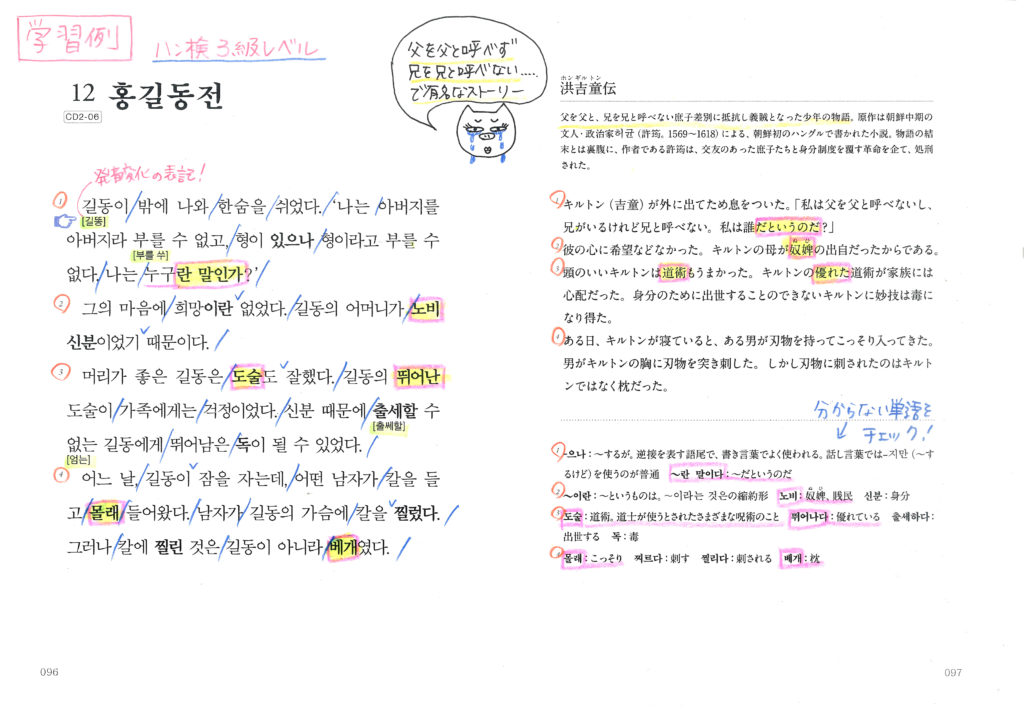 学習例
ハン検3級レベル
12 홍길동전
CD2-06
発音変化の表記!
① 길동이 밖에 나와 한숨을 쉬었다. '나는 아버지를
[길똥]
아버지라 부를 수 없고, 형이 있으나 형이라고 부를 수
[부를 쑤]
없다. 나는 누구란 말인가?'
② 그의 마음에 희망이란 없었다. 길동의 어머니가 노비
신분이었기 때문이다.
③ 머리가 좋은 길동은 도술도 잘했다. 길동의 뛰어난
도술이 가족에게는 걱정이었다. 신분 때문에 출세할 수
[출쎄할]
없는 길동에게 뛰어남은 독이 될 수 있었다.
[엄는]
④ 어느 날, 길동이 잠을 자는데, 어떤 남자가 칼을 들
고 몰래 들어왔다. 남자가 길동의 가슴에 칼을 찔렀다.
그러나 칼에 찔린 것은 길동이 아니라 베개였다.
096
父を父と呼べず
兄を兄と呼べない.....
で有名なストーリー
ホンギルトン
洪吉童伝
父を父と、兄を兄と呼べない庶子差別に抵抗し義賊となった少年の物語。原作は朝鮮中期の
文人・政治家허균(許筠。1569〜1618)による、朝鮮初のハングルで書かれた小説。物語の結
末とは裏腹に、作者である許筠は、交友のあった庶子たちと身分制度を覆す革命を企て、処刑
された。
① キルトン(吉童)が外に出てため息をついた。「私は父を父と呼べないし、
兄がいるけれど兄と呼べない。私は誰だというのだ?」
② 彼の心に希望などなかった。キルトンの母が奴婢の出自だったからである。
ぬひ
③ 頭のいいキルトンは道術もうまかった。キルトンの優れた道術が家族には
心配だった。身分のために出世することのできないキルトンに妙技は毒に
なり得た。
④ ある日、キルトンが寝ていると、ある男が刃物を持ってこっそり入ってきた。
男がキルトンの胸に刃物を突き刺した。しかし刃物に刺されたのはキルト
ンではなく枕だった。
分からない単語を
チェック!
① -으나:〜するが。逆接を表す語尾で、書き言葉でよく使われる。話し言葉では-지만(〜す
るけど)を使うのが普通 〜란 말이다:〜だというのだ
② 〜이란:〜というものは。〜이라는 것은の縮約形 노비:奴婢、賎民 신분:身分
ぬひ
③ 도술:道術。道士が使うとされたさまざまな呪術のこと 뛰어나다:優れている 출세하다:
出世する 독:毒
④ 몰래:こっそり 찌르다:刺す 찔리다:刺される 베개:枕
097